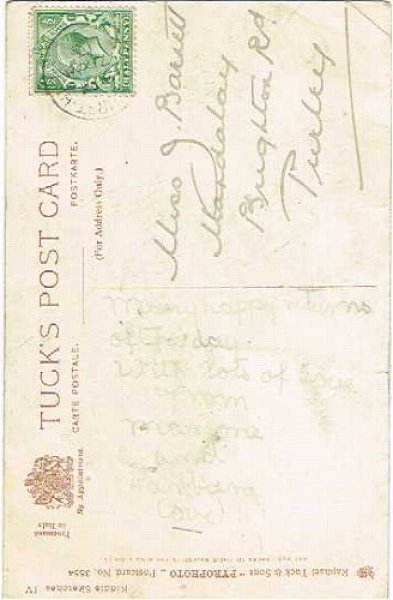 HALFPENNY
TUCK'S POST CARD
CARTE POSTALE.
POSTKARTE.
(For Address Only.)
By Appointment.
Processed
in Italy
Miss J. Barrett
Mandalay
Brighton Rd
Purley
Many happy returns
of the day.
With lots of love
from
and
love
Raphael Tuck & Sons "PYROPHOTO" Postcard No. 3554
Kiddie Sketches IV